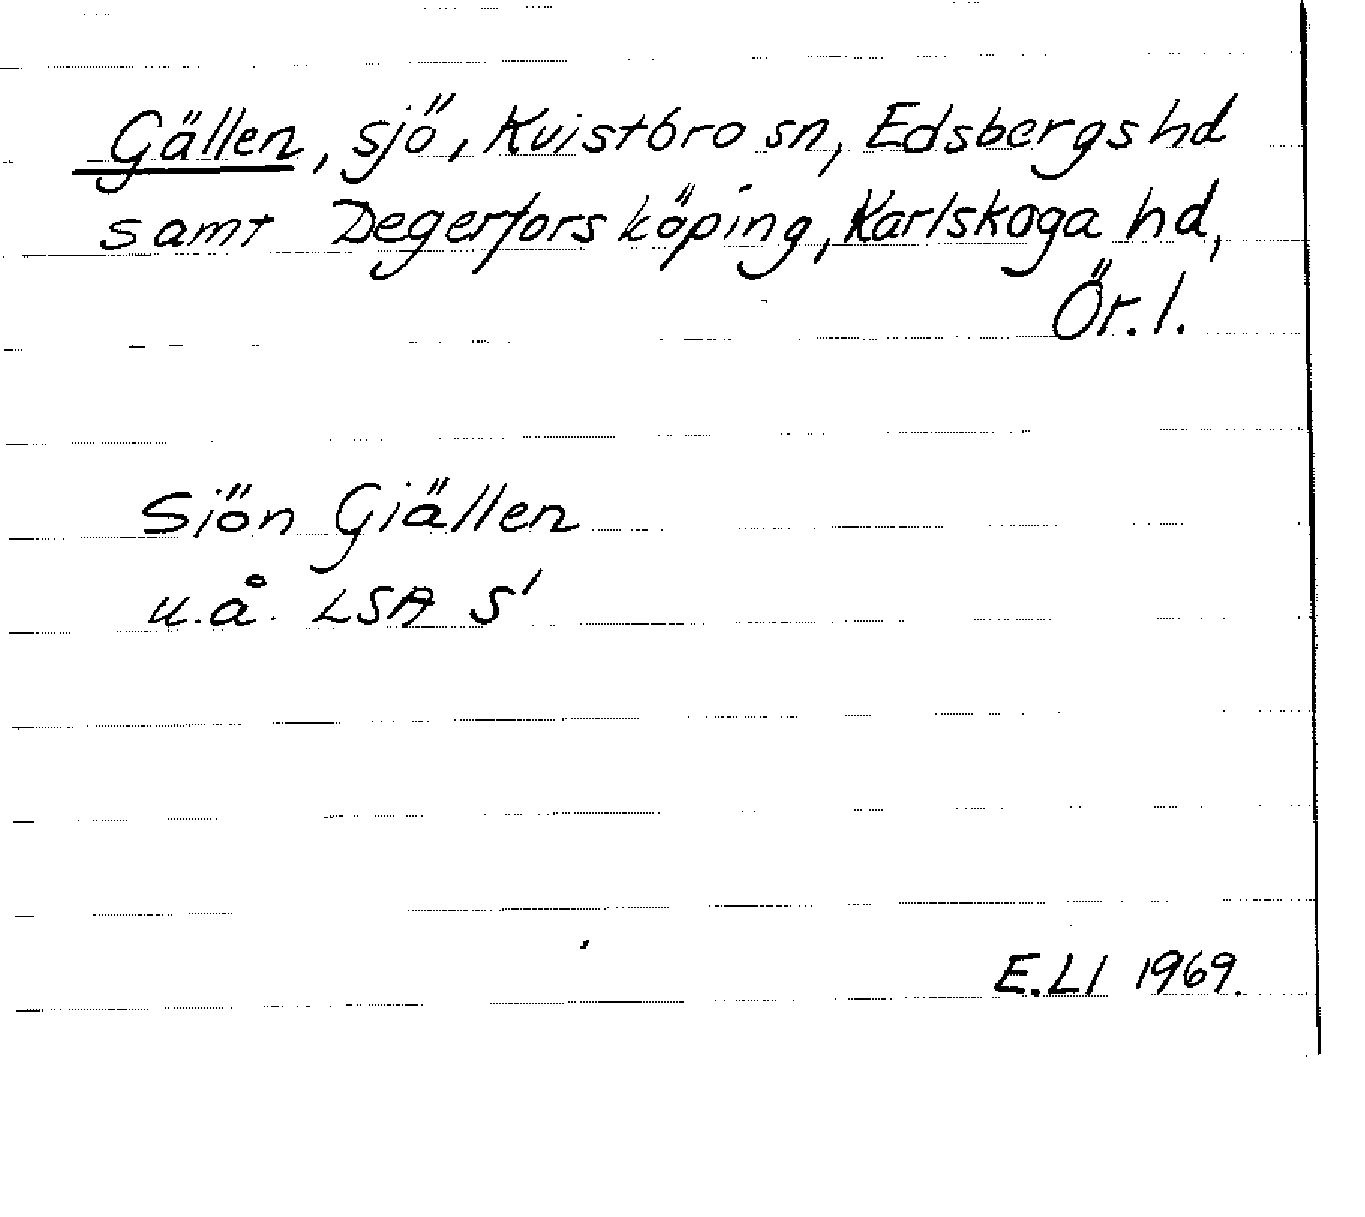 Gällen, sjö, Kvistbro sn, Edsbergs hd
samt Degerfors köping, Karlskoga hd,
Ör. l.
Siön Giällen
u.å. LSA S'
E.LI 1969.